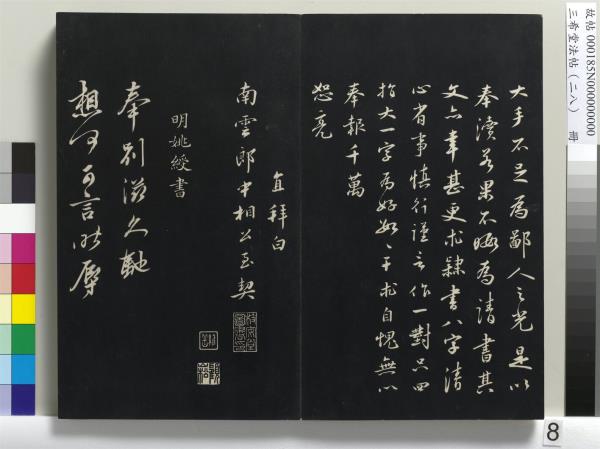 大手不足為鄙人之光是以
奉瀆若果不晦為清書其
文六幸甚更求隸書八字清
心省事慎行謹言作一對只四
指大一字為好如〻干求自愧無以
奉報千萬
恕亮
直拜白
南雲郎中相公至契
明姚綬書
奉別滋久馳
想何可言昨辱
故帖 000185N000000000
三希堂法帖(二八) 冊
8